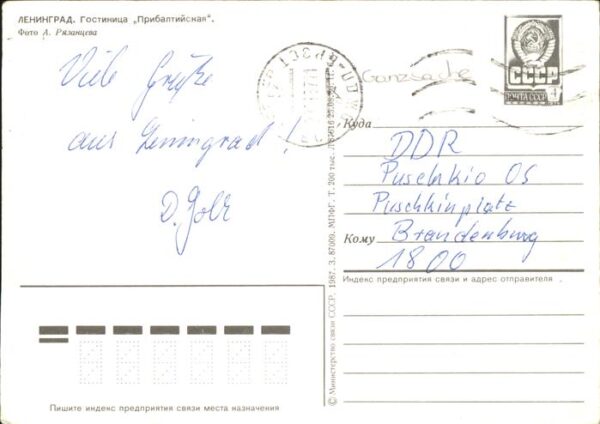 ЛЕНИНГРАД. Гостиница „Прибалтийская“.
Фото А. Рязанцева
Viele Grüße
aus Leningrad!
Ganzsache
СССР
ПОЧТА СССР
4
Куда
DDR
Puschkin OS
Puschkinplatz
Кому Brandenburg
1800
Индекс предприятия связи и адрес отправителя
© Министерство связи СССР. 1987. З. 87009. МПФГ. Т. 200 тыс.
Пишите индекс предприятия связи места назначения